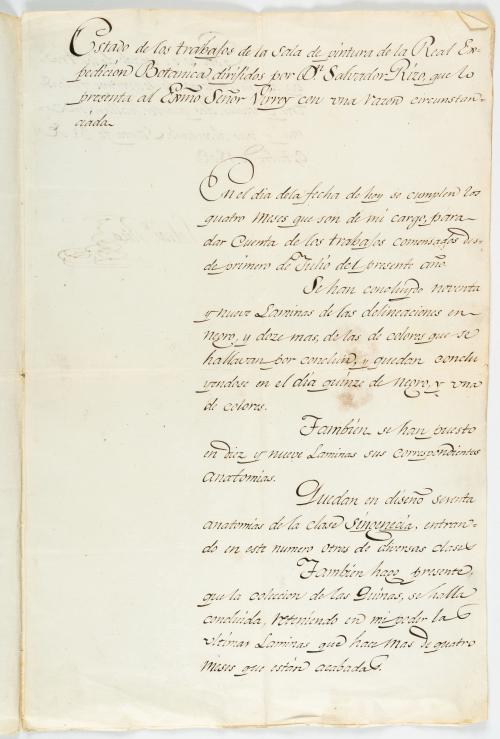 Estado de los trabajos de la Sala de pintura de la Real Ex-
pedicion Botánica dirijidos por Dn. Salvador Rizo, que lo
presenta al Exmo Señor Virrey con vna razon circunstan-
ciada
En el dia de la fecha de hoy se cumplen los
quatro meses que son de mi cargo, para
dar Cuenta de los trabajos comensados des-
de primero de Julio del presente año
Se han concluydo noventa
y nueve Laminas de las delineaciones en
negro, y doze mas, de las de colores que se
hallavan por concluir, y quedan conclu
yendose en el día quinze de negro, y vna
de colores.
Tambien se han puesto
en diez y nueve Laminas sus correspondientes
anatomias.
Quedan en diseño setenta
anatomias de la clase Singenecia, entran-
do en este numero otras de diversas clases
Tambien hago presente,
que la coleccion de las Quinas, se halla
concluida, reteniendo en mi poder la s
vltimas Laminas que hace mas de quatro
meses que estan acabada s.